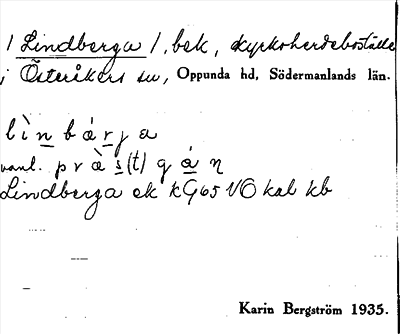 / Lindberga /, bek, kyrkoherdeboställe
i Österåkers sn, Oppunda hd, Södermanlands län.
lìnbárja
vanl. prás(t)gán
Lindberga ek KG65 VO kal kb
Karin Bergström 1935.